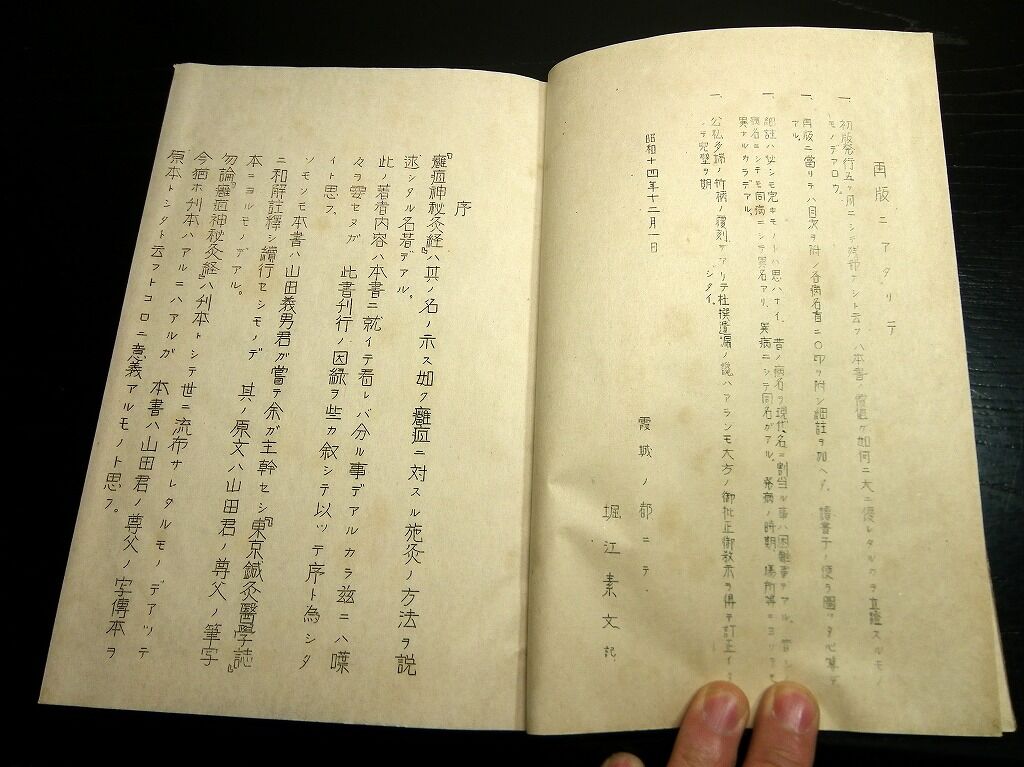 再版ニアタリテ
一、初版発行五ヶ月ニシテ残部ナシト云フハ本書ノ價値ガ如何ニ大ニ優レタルカヲ立證スルモノ
モノデアロウ。
一、再版ニ當リテハ目次ヲ附ノ各病名首ニ〇印ヲ附シ細註ヲ加ヘテ、讀書子ノ便ヲ圖
アル。
一、細註ハ必シモ完キモノトハ思ハナイ、昔ノ病名ヲ現代名ニ割当ル事ハ困難事デアル。
病名ニシテモ同病ニシテ異名アリ、異病ニシテ同名ガアル。発病ノ時期、場所等ニヨリ
異ナルカラデアル。
一、公私多端ノ折柄ノ復刻デアリテ杜撰遺漏ノ譏ハアランモ大方ノ御批正御教示ヲ得テ訂正イ
シタイ。
テ完璧ヲ期
昭和十四年十二月一日
霞城ノ都ニテ
堀江素文記
序
『癰疽神秘灸経』ハ其ノ名ノ示ス如ク癰疽ニ対スル施灸ノ方法ヲ説
述シタル名著デアル。
此ノ著者内容ハ本書ニ就イテ看レバ分ル事デアルカラ茲ニハ喋
々ヲ要セヌガ 此書刊行ノ因縁ヲ些カ叙シテ以ッテ序ト為シタ
イト思フ。
ソモソモ本書ハ山田義男君ガ嘗テ余ガ主幹セシ『東京鍼灸醫學誌』
ニ和解註釋シ續行セシモノデ 其ノ原文ハ山田君ノ尊父ノ筆写
本ニヨルモノデアル。
勿論『癰疽神秘灸経』ハ刋本トシテ世ニ流布サレタルモノデアッテ
今猶ホ刋本ハアルニハアルガ 本書ハ山田君ノ尊父ノ写傳本ヲ
原本トシタト云フトコロニ意義アルモノト思フ。